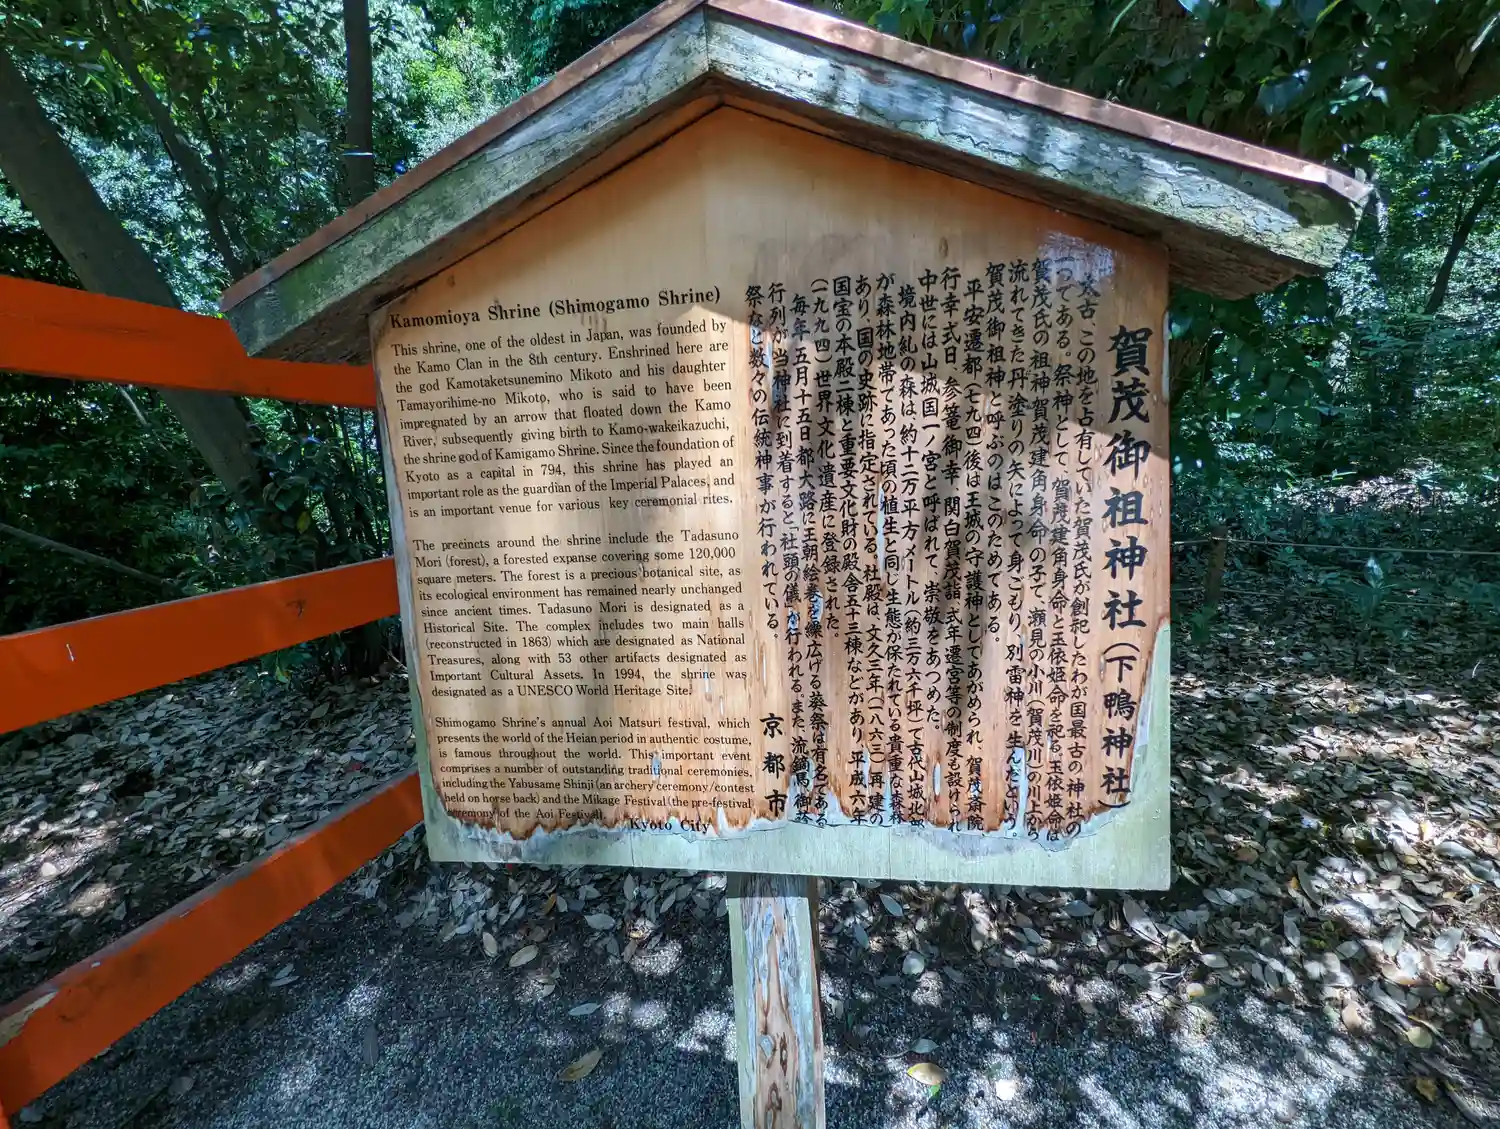 Kamomioya Shrine (Shimogamo Shrine)
This shrine, one of the oldest in Japan, was founded by
the Kamo Clan in the 8th century. Enshrined here are
the god Kamotaketsunemino Mikoto and his daughter
Tamayorihime-no Mikoto, who is said to have been
impregnated by an arrow that floated down the Kamo
River, subsequently giving birth to Kamo-wakeikazuchi,
the shrine god of Kamigamo Shrine. Since the foundation of
Kyoto as a capital in 794, this shrine has played an
important role as the guardian of the Imperial Palaces, and
is an important venue for various key ceremonial rites.
The precincts around the shrine include the Tadasuno
Mori (forest), a forested expanse covering some 120,000
square meters. The forest is a precious botanical site, as
its ecological environment has remained nearly unchanged
since ancient times. Tadasuno Mori is designated as a
Historical Site. The complex includes two main halls
(reconstructed in 1863) which are designated as National
Treasures, along with 53 other artifacts designated as
Important Cultural Assets. In 1994, the shrine was
designated as a UNESCO World Heritage Site.
Shimogamo Shrine's annual Aoi Matsuri festival, which
presents the world of the Heian period in authentic costume,
is famous throughout the world. This important event
comprises a number of outstanding traditional ceremonies,
including the Yabusame Shinji (an archery ceremony/contest
held on horse back) and the Mikage Festival (the pre-festival
ceremony of the Aoi Festival).
Kyoto City
賀茂御祖神社(下鴨神社)
太古、この地を占有していた賀茂氏が創祀したわが国最古の神社の
一つである。祭神として、賀茂建角身命と玉依姫命を祀る。玉依姫命は
賀茂氏の祖神賀茂建角身命の子で、瀬見の小川(賀茂川)の川上から
流れてきた丹塗りの矢によって身ごもり、別雷神を生んだという。
賀茂御祖神社と呼ぶのはこのためである。
平安遷都(七九四)後は王城の守護神としてあがめられ、賀茂斎院
行幸、式日、参篭御幸、関白賀茂詣、式年遷宮等の制度も設けられ
中世には山城国一ノ宮と呼ばれて、崇敬をあつめた。
境内糺の森は、約十二万平方メートル(約三万六千坪)で古代山城北部
が森林地帯であった頃の植生と同じ生態が保たれている貴重な森林で
あり、国の史跡に指定されている。社殿は、文久三年(一八六三)再建の
国宝の本殿二棟と重要文化財の殿舎五十三棟などがあり、平成六年
(一九九四)世界文化遺産に登録された。
毎年五月十五日都大路に王朝絵巻を繰広げる葵祭は有名である
行列が当神社に到着すると「社頭の儀」が行われる。また、流鏑馬、御蔭
祭など数々の伝統神事が行われている。
京都市